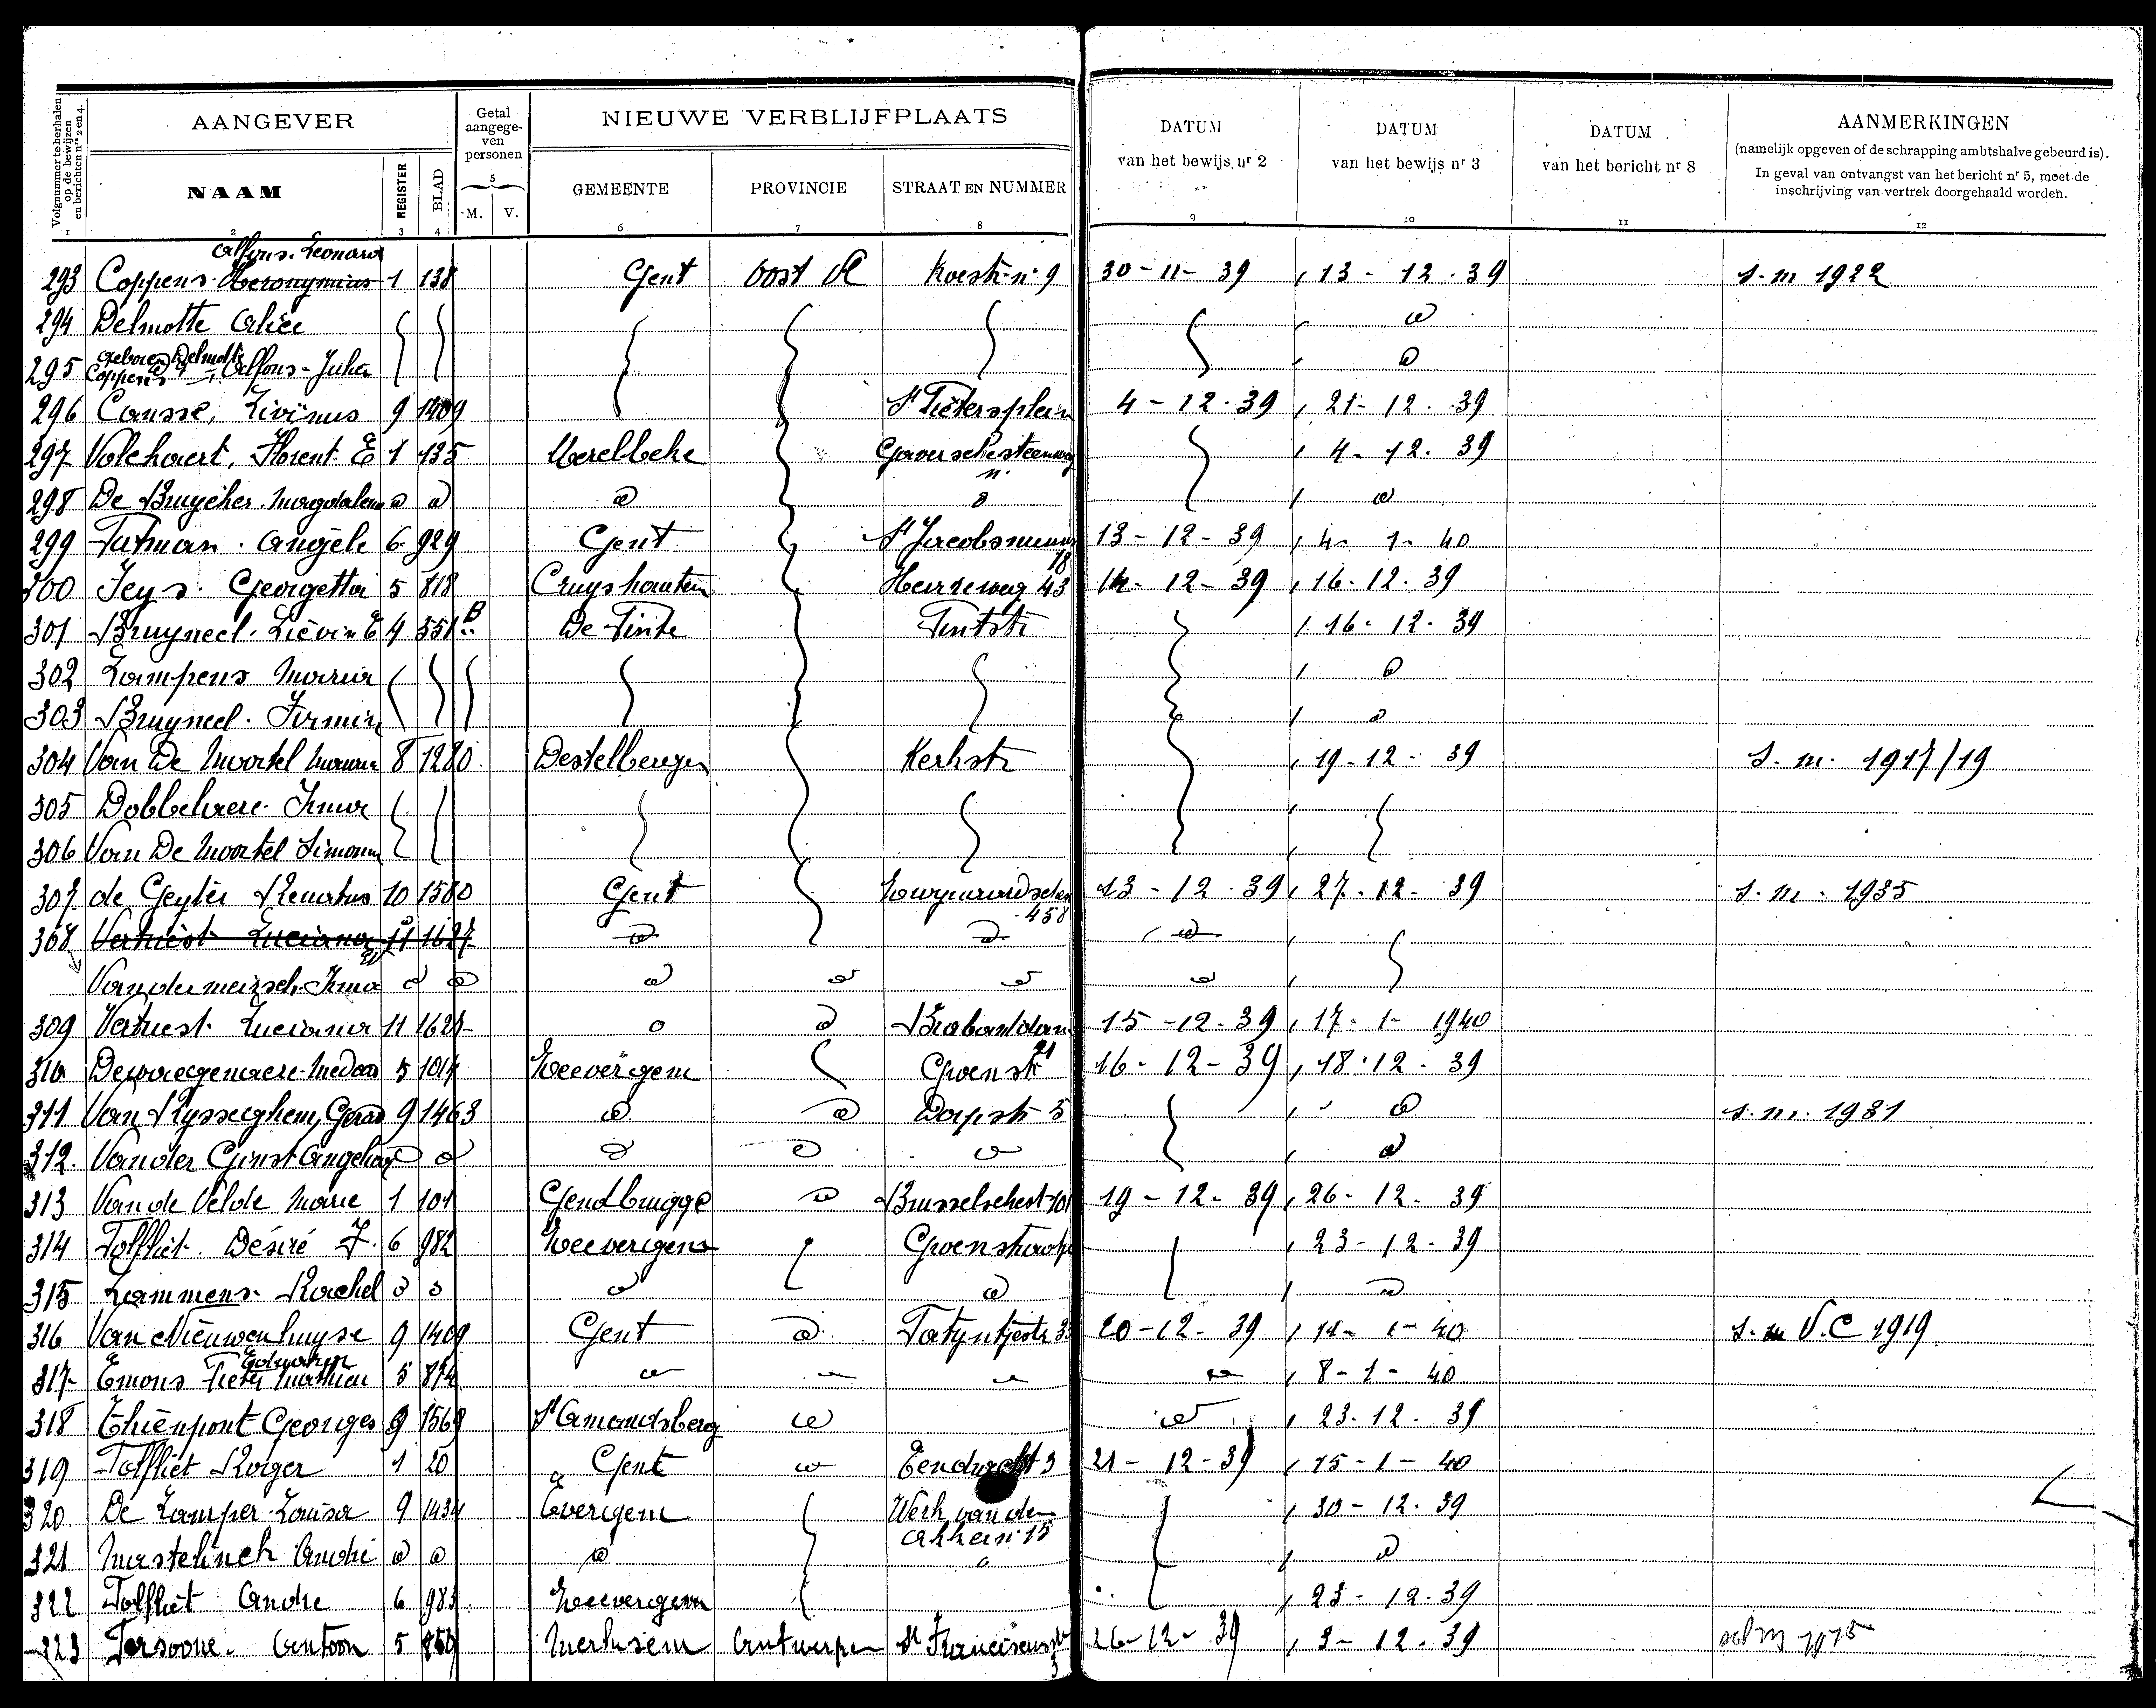 Volgnummer te herhalen op de bewijzen en berichten nrs 2 en 4.
AANGEVER
Getal aangege- ven personen
NIEUWE VERBLIJFPLAATS
DATUM van het bewijs nr 2
DATUM van het bewijs nr 3
DATUM van het bericht nr 8
AANMERKINGEN
(namelijk opgeven of de schrapping ambtshalve gebeurd is).
In geval van ontvangst van het bericht nr 5, moet de
inschrijving van vertrek doorgehaald worden.
NAAM REGISTER BLAD 5 M. V. GEMEENTE PROVINCIE STRAAT EN NUMMER
1 2 3 4 6 7 8 9 10 11 12
Alfons. Leonard
293 Coppens. Heronymius 1 138 Gent Oost Vl n. 9 30-11-39 13-12.39 s.m 1922
294 Delmotte Alice
geboren Delmotte
295 Coppens Alfons-Julien
296 Causse, Livinus 9 1409 St Pietersplein 4-12.39 21-12.39
297 Volckaert, Florent. E 1 135 Merelbeke Gaverschesteenweg 4-12.39
n.
298 De Bruycker. Magdalena
299 Tatman. Angèle 6 929 Gent St Jacobsnieuw 13-12-39 4-1-40
18
300 Jeys. Georgetta 5 818 Cruyshoutem Heirweg 43 14-12-39 16-12.39
301 Bruyneel. Liévin E 4 551 B De Pinte 16-12.39
302 Lampens Maria
303 Bruyneel. Firmin
304 Van De Moortel 8 1280 Destelbergen Kerkstr 19-12-39 s.m. 1917/19
305 Dobbelaere Irma
306 Van De Moortel Simonne
307 de Geyter Renatus 10 1580 Gent 13-12.39 27-12-39 s.m. 1935
458
308 Vertriest Luciana 11 1627
Vandermeirsch Irma
309 Vertriest Luciana 11 162 Brabantdam 15-12-39 17-1-1940
21
310 Dewaegenaere Medard 5 1014 Zeevergem Groenstr 16-12-39 18.12.39
311 Van Rysseghem, Gerard 9 1463 Dorpstr 5 s.m. 1931
312. Vander Gunst Angelina
313 Van de Velde Marie 1 101 Gendbrugge Brusselschest 101 19-12-39 26-12.39
314 Tolfliet. Désiré F. 6 982 Zeevergem Groenstraat 23-12-39
315 Lammens. Rachel
316 Van Nieuwenhuyse 9 1409 Gent Tatyntjestr 20-12-39 1-40 s.m V.C 1919
317 Emons Pieter Mathieu 5 874 8-1-40
318 Thienpont Georges 9 1569 St Amandsberg 23.12.39
319 Tolfliet Roger 1 20 Gent Eendracht 3 21-12-39 15-1-40
320. De Lamper Louisa 9 1434 Evergem Werk van den 30-12.39
Akker n. 15
321 Mastelinck André
322 Tolfliet Andre 6 983 Zeevergem 23-12.39
323 Persoone. Antoon 5 859 Merksem Antwerpen St Franciscusstr 26-12-39 3-12.39
3